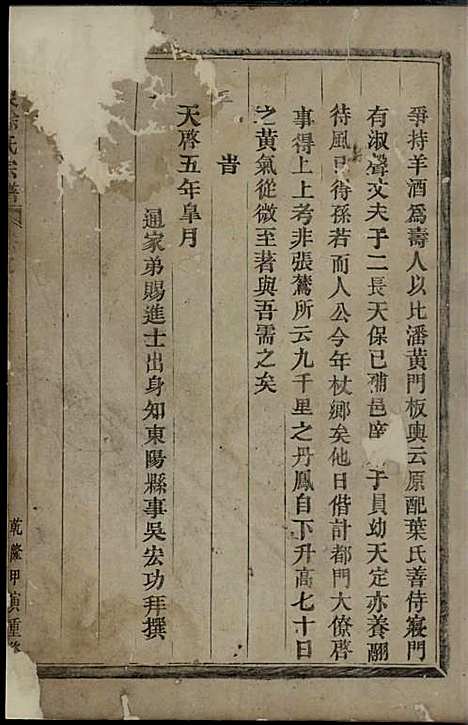 爭持羊酒爲壽人以比潘黃門板輿云原配葉氏善侍寢門
有淑聲丈夫子二長天保已補邑庠 于員幼天定亦養翮
待風日待孫若而人公今年杖鄉矣他日偕計都門大僚啓
事得上上考非張騖所云九千里之丹鳳自下升高七十日
之黃氣從微至著與吾需之矣
旹
天啓五年皐月
通家弟賜進士出身知東陽縣事吳宏功拜撰
徐氏宗譜
乾隆甲寅重修